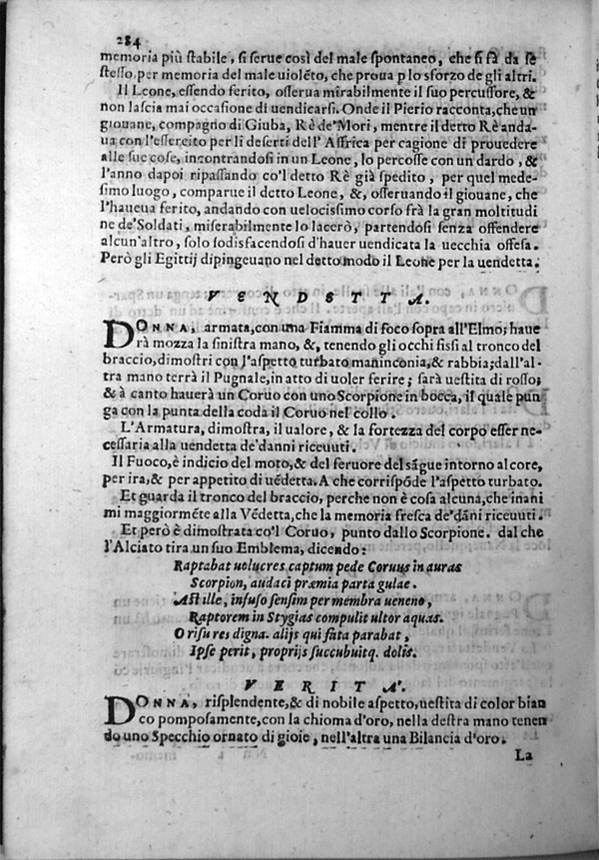 284
memoria più ſtabile, ſi ſerue così del male ſpontaneo, che ſi fà da ſe
ſteſſo per memoria del male uiolẽto, che proua p lo sforzo de gli altri.
Il Leone, eſſendo ferito, oſſerua mirabilmente il ſuo percuſſore, &
non laſcia mai occaſione di uendicarſi. Onde il Pierio racconta, che un
giouane, compagno di Giuba, Rè de'Mori, mentre il detto Rè anda-
ua con l'eſſercito per li deſerti dell'Affrica per cagione di prouedere
alle ſue coſe, incontrandoſi in un Leone, lo percoſſe con un dardo, &
l'anno dapoi ripaſſando co'l detto Rè già ſpedito, per quel mede-
ſimo luogo, comparue il detto Leone, &, oſſeruando il giouane, che
l'haueua ferito, andando con uelociſſimo corſo frà la gran moltitudi
ne de'Soldati, miſerabilmente lo lacerò, partendoſi ſenza offendere
alcun'altro, ſolo ſodisfacendoſi d'hauer uendicata la uecchia offeſa.
Però gli Egittij dipingeuano nel detto modo il Leone per la uendetta.
VENDETTA.
DONNA, armata, con una Fiamma di foco ſopra all'Elmo; haue
rà mozza la ſiniſtra mano, &, tenendo gli occhi fiſſi al tronco del
braccio, dimoſtri con l'aſpetto turbato maninconia, & rabbia; dall'al-
tra mano terrà il Pugnale, in atto di uoler ferire; ſarà ueſtita di roſſo;
& à canto hauerà un Coruo con uno Scorpione in bocca, il quale pun
ga con la punta della coda il Coruo nel collo.
L'Armatura, dimoſtra, il ualore, & la fortezza del corpo eſſer ne-
ceſſaria alla uendetta de'danni riceuuti.
Il Fuoco, è indicio del moto, & del feruore del sãgue intorno al core,
per ira, & per appetito di uẽdetta. A che corriſpõde l'aſpetto turbato.
Et guarda il tronco del braccio, perche non è coſa alcuna, che inani
mi maggiormẽte alla Vẽdetta, che la memoria freſca de'dãni riceuuti.
Et però è dimoſtrata co'l Coruo, punto dallo Scorpione. dal che
l'Alciato tira un ſuo Emblema, dicendo:
Raptabat uolucres captum pede Coruus in auras
Scorpion, audaci præmia parta gulae.
Aſt ille, infuſo ſenſim per membra ueneno,
Raptorem in Stygias compulit ultor aquas.
O riſu res digna. alijs qui fata parabat,
Ipſe perit, proprijs ſuccubuitq. dolis.
VERITA'.
DONNA, riſplendente, & di nobile aſpetto, ueſtita di color bian
co pompoſamente, con la chioma d'oro, nella deſtra mano tenen
do uno Specchio ornato di gioie, nell'altra una Bilancia d'oro.
La